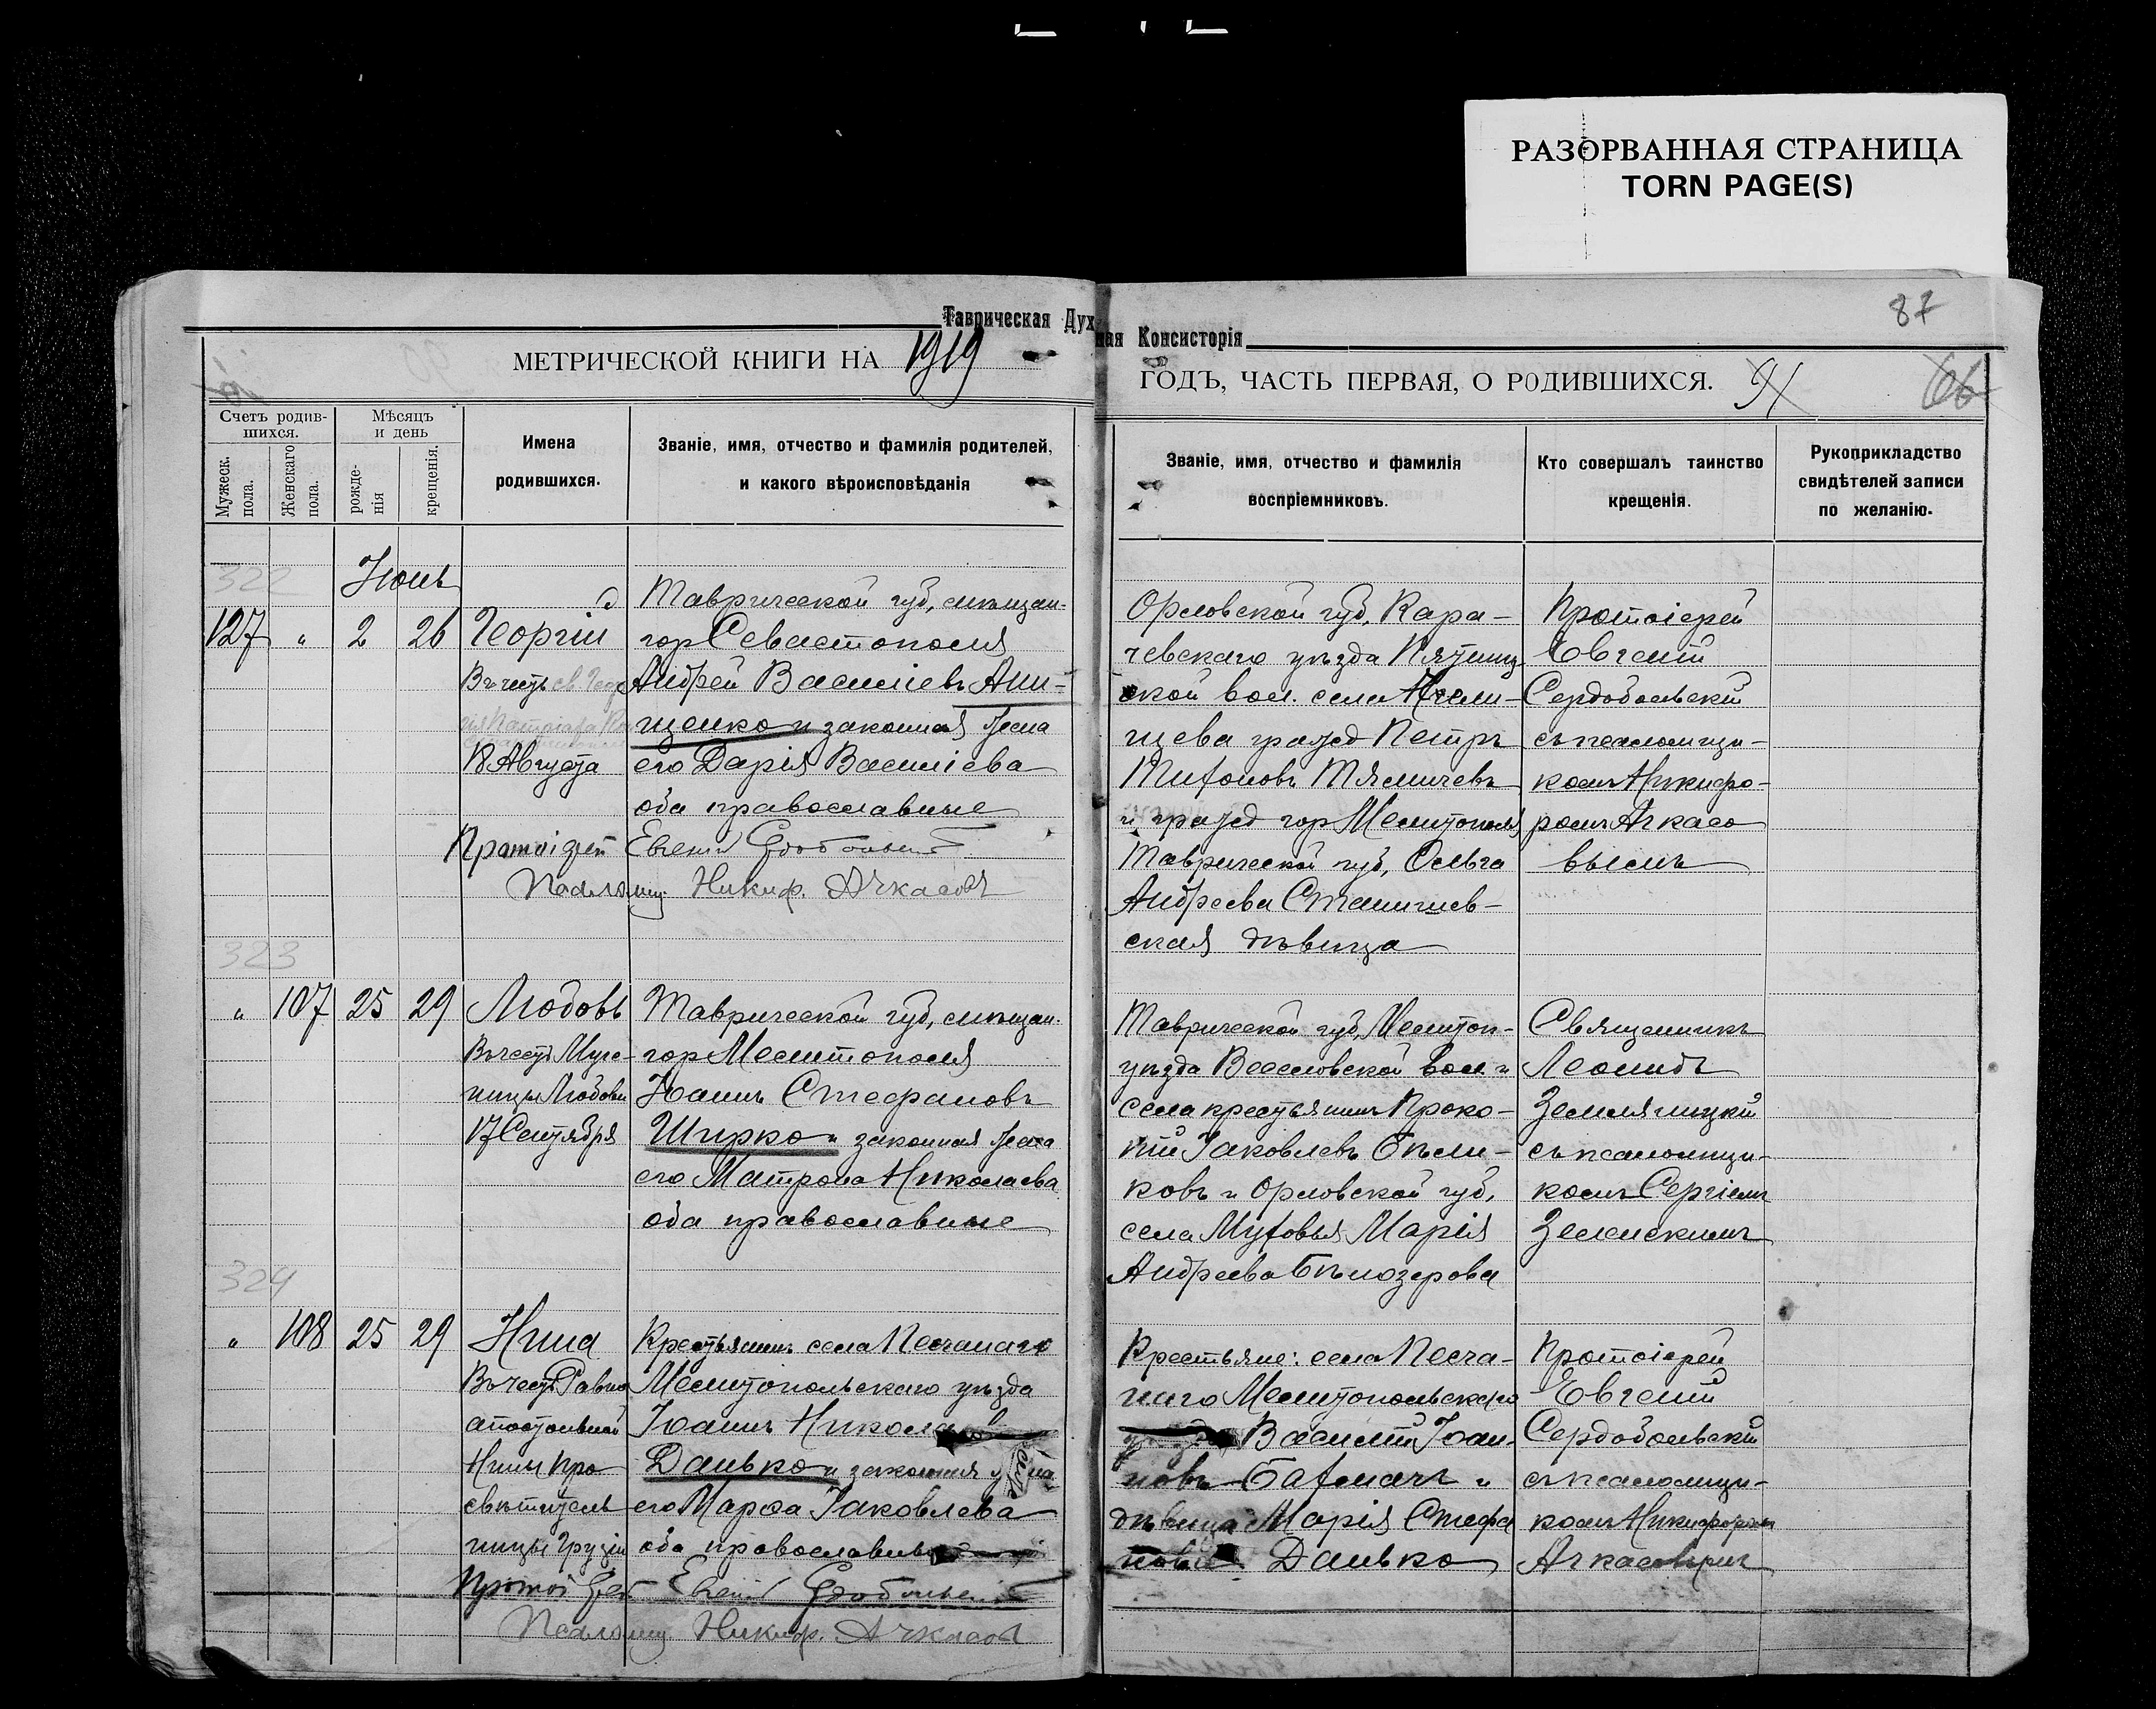 РАЗОРВАННАЯ СТРАНИЦА
TORN PAGE(S)
87
Таврическая Духовная Консисторія
МЕТРИЧЕСКОЙ КНИГИ НА 1919
ГОДЪ, ЧАСТЬ ПЕРВАЯ, О РОДИВШИХСЯ. 91
66
Счетъ родив-
шихся.
Мужеск. пола.
Женскаго пола.
Мѣсяцъ
и день
рожде-
нія
крещенія.
Имена
родившихся.
Званіе, имя, отчество и фамилія родителей,
и какого вѣроисповѣданія
Званіе, имя, отчество и фамилія
воспріемниковъ.
Кто совершалъ таинство
крещенія.
Рукоприкладство
свидѣтелей записи
по желанію.
322
Іюнь
127 " 2 26 Георгій
Въ честь св. Геор
гія Патріарха
18 Августа
Таврической губ, мѣщан.
гор Севастополя
Андрей Василіевъ Ани-
щенко и законная жена
его Дарія Василіева
оба православные
Протоіерей Евгеній Сердобольскій
Псаломщ Никиф. Ачкасовъ
Орловской губ, Кара-
чевскаго уѣзда Пятниц
ской вол. села
щева гражд Петръ
и гражд гор Мелитополя
Таврической губ, Ольга
Андреева
ская дѣвица
Протоіерей
Евгеній
Сердобольскій
съ псаломщи-
комъ Никифо-
ромъ Ачкасо
вымъ
323
" 107 25 29 Любовь
Въ честь Муче-
ницы Любови
17 Сентября
Таврической губ, мѣщан.
гор Мелитополя
Іоаннъ Стефановъ
Ширко и законная жена
его Матрона Николаева
оба православные
Таврической губ, Мелитоп-
уѣзда Веселовской вол и
села крестьянинъ Проко-
пій Іаковлевъ Бѣли-
ковъ и Орловской губ,
села Марія
Андреева Бѣлозерова
Священникъ
Леонидъ
Землягицкій
съ псаломщи-
комъ Сергіемъ
Земскимъ
324
" 108 25 29 Нина
Въ честь Равно
апостольной
Нины про
свѣтитель
ницы Грузіи
Крестьянинъ села Песчанаго
Мелитопольскаго уѣзда
Іоаннъ Никола
Данько и законная жена
его Марѳа Іаковлева
оба православные
Протоіерей Евгеній Сердобольскій
Псаломщ Никиф. Ачкасовъ
Крестьяне: села Песча-
наго Мелитопольскаго
уѣзда Василій Іоан-
новъ и
дѣвица Марія Стефа
нова Данько
Протоіерей
Евгеній
Сердобольскій
съ псаломщи-
комъ Никифоромъ
Ачкасовымъ